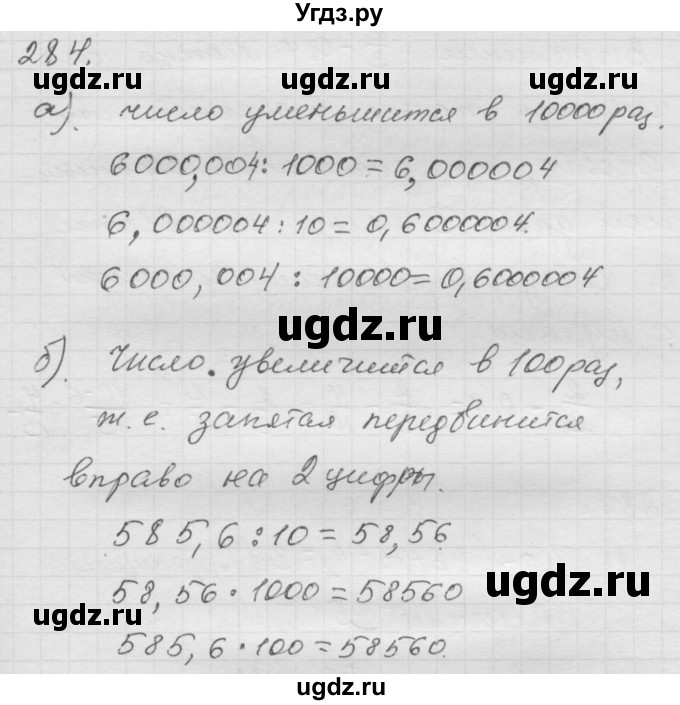 Угдз.ру
284.
ugdz.ru ugdz.ru
а). число уменьшится в 10000 раз.
6000,004 : 1000 = 6,000004
6,000004 : 10 = 0,6000004.
6000,004 : 10000 = 0,6000004
ugdz.ru
б). Число увеличится в 100 раз,
т.е. запятая передвинится
вправо на 2 цифры.
585,6 : 10 = 58,56
ugdz.ru
58,56 · 1000 = 58560
ugdz.ru
585,6 · 100 = 58560.
ugdz.ru